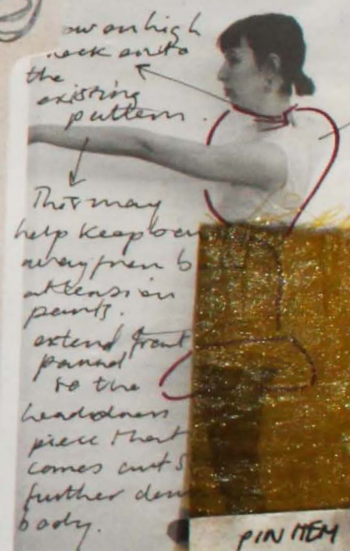 on high
neck onto
the
existing
pattern.
This may
help keep
away from
attension
extend front
pannel
so the
headdress
piece that
comes out
further down
body.
PIN HEM